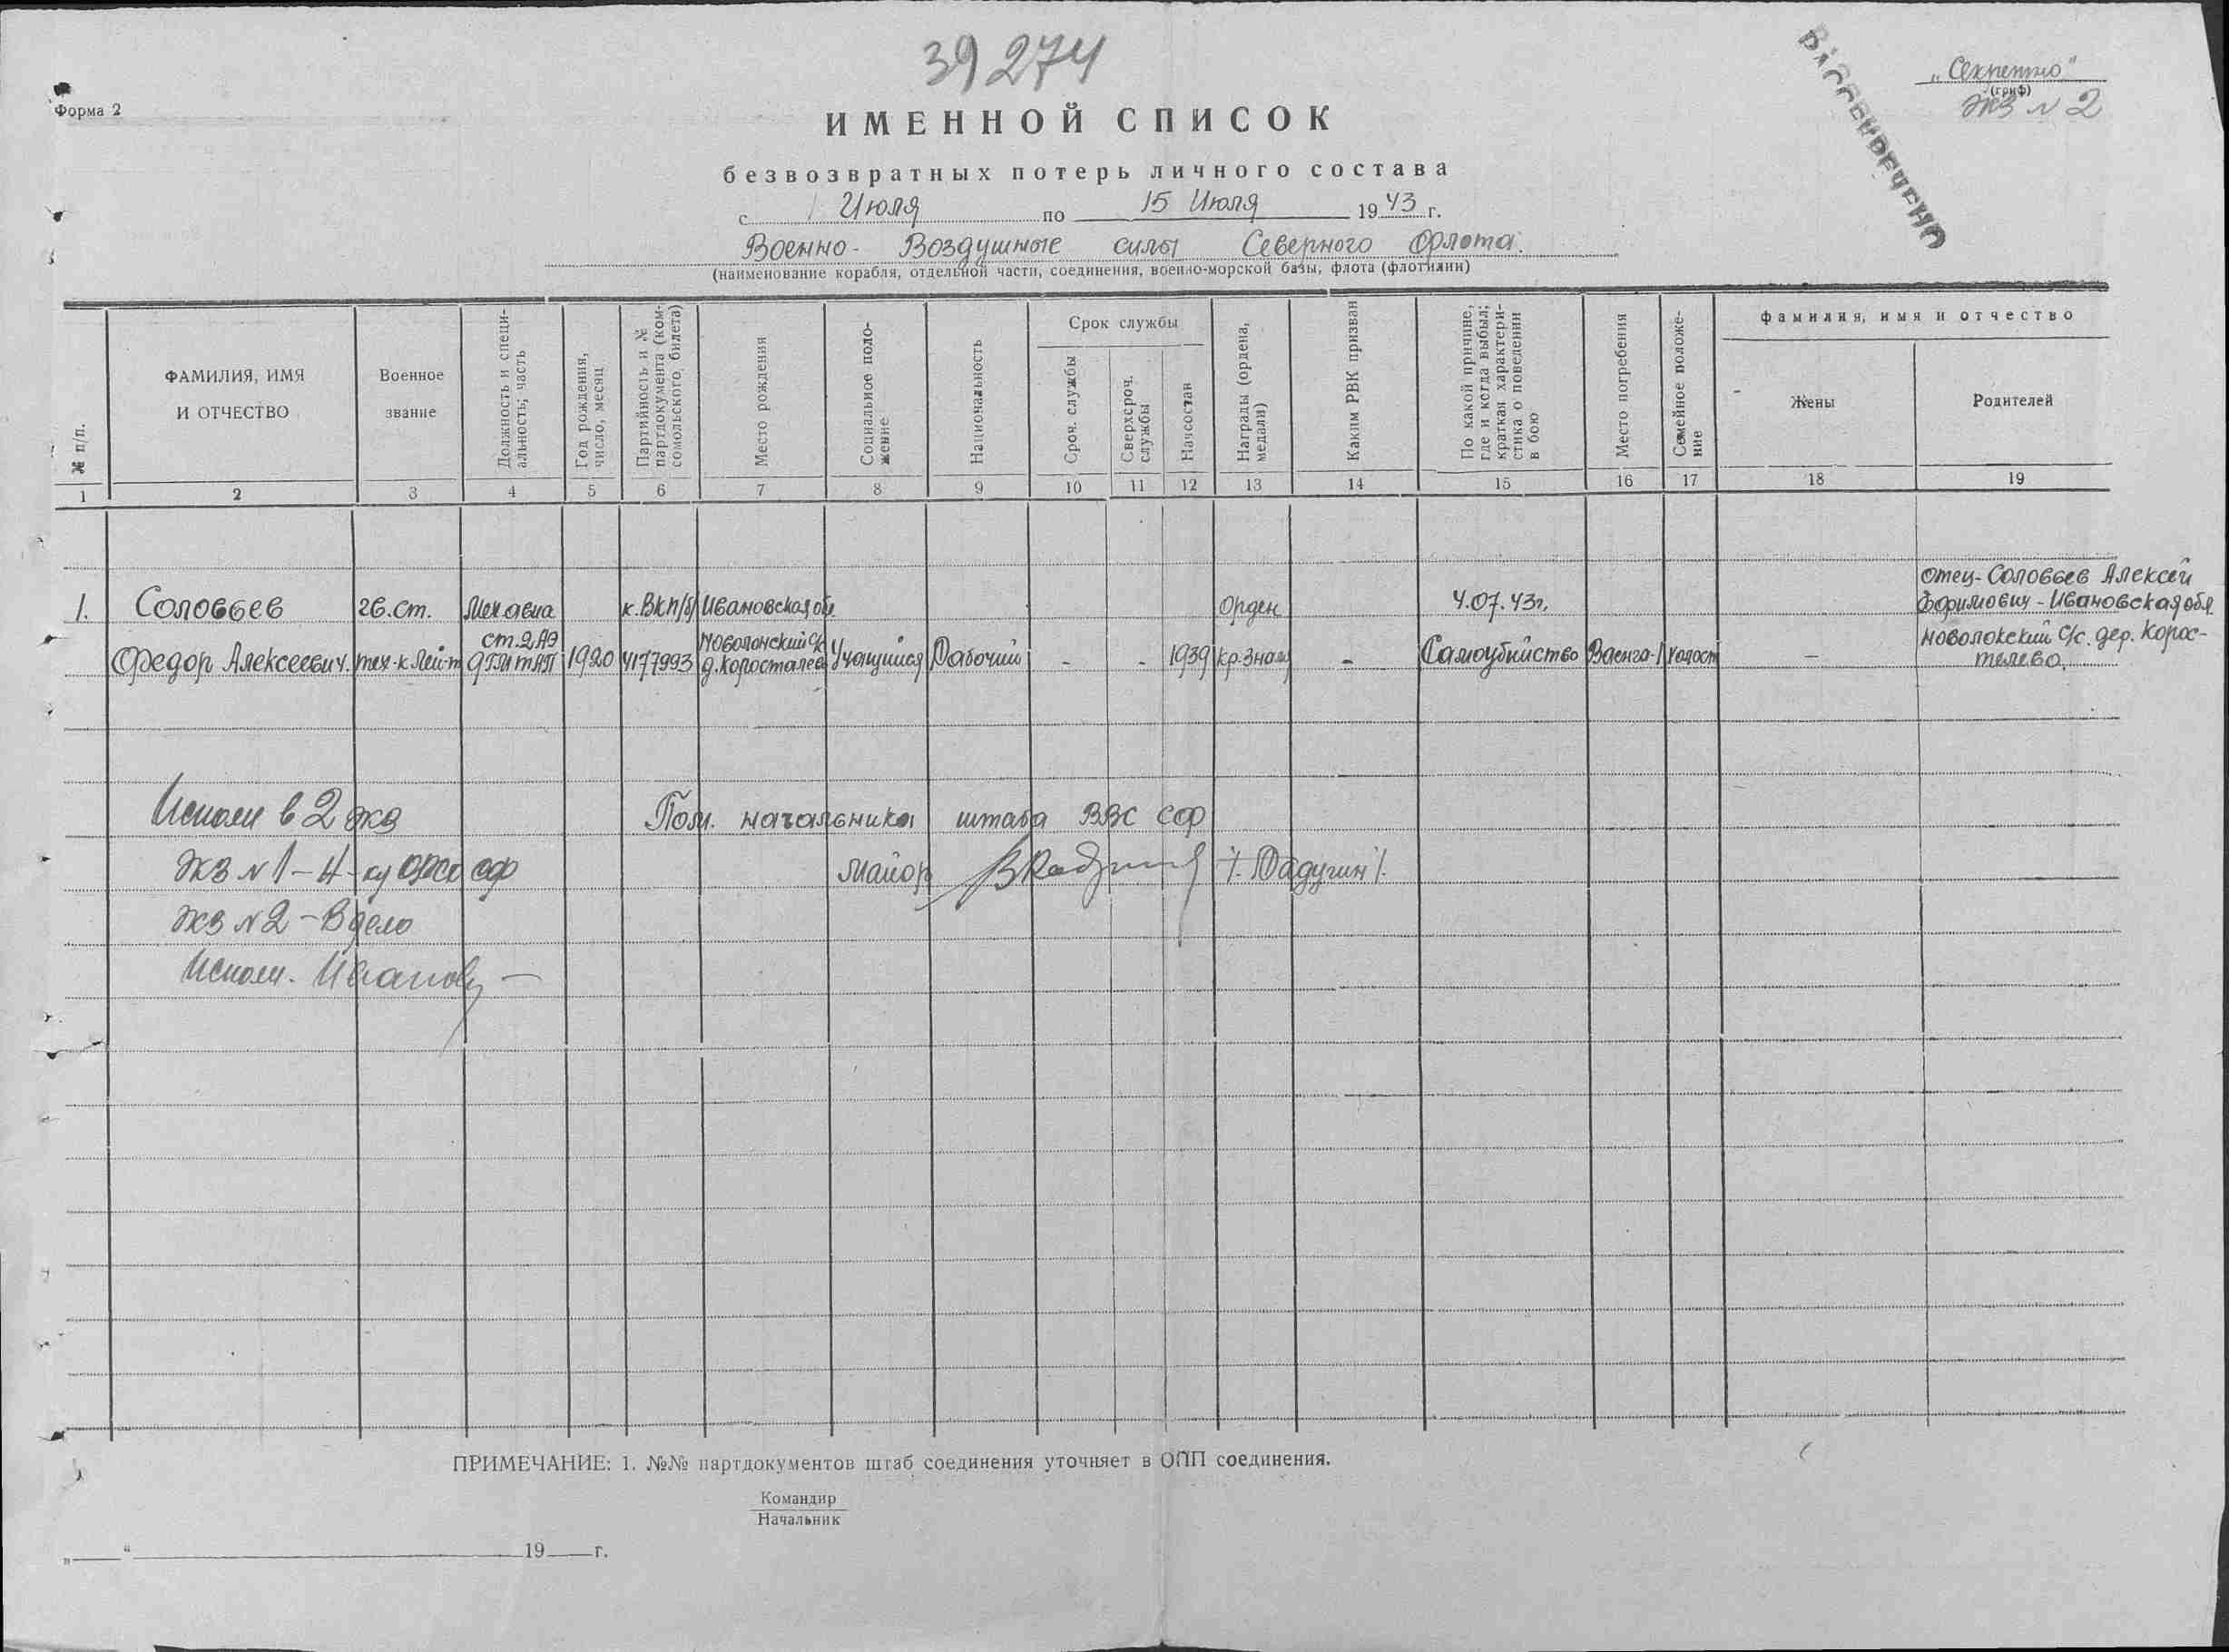 39274
Форма 2
„Секретно“
(гриф)
Экз № 2
РАССЕКРЕЧЕНО
ИМЕННОЙ СПИСОК
безвозвратных потерь личного состава
с 1 Июля по 15 Июля 1943 г.
Военно-Воздушные силы Северного Флота.
(наименование корабля, отдельной части, соединения, военно-морской базы, флота (флотилии)
№ п/п.
ФАМИЛИЯ, ИМЯ
И ОТЧЕСТВО
Военное
звание
Должность и специ-
альность; часть
Год рождения,
число, месяц
Партийность и №
партдокумента (ком-
сомольского билета)
Место рождения
Социальное поло-
жение
Национальность
Срок службы
Сроч. службы
Сверхсроч.
службы
Начсостав
Награды (ордена,
медали)
Каким РВК призван
По какой причине,
где и когда выбыл;
краткая характери-
стика о поведении
в бою
Место погребения
Семейное положе-
ние
фамилия, имя и отчество
Жены
Родителей
1 2 3 4 5 6 7 8 9 10 11 12 13 14 15 16 17 18 19
отец-Соловьев Алексей
1. Соловьев гв.ст. Мех авиа к.ВКП/б/ Ивановская обл Орден 4.07.43г. - Ивановская обл
ст. 2 АЭ новолокский с/с. дер. Корос-
Федор Алексеевич. тех-к лей-т 9 ГМТАП 1920 4177993 д.Коросталев Учащийся Рабочий - - 1939 Кр.Знам - Самоубийство Ваенга-1 холост - телево.
Исполн в 2 экз Пом. начальника штаба ВВС СФ
Экз № 1 - Н-ку СФ майор /Радугин/.
Экз № 2 - В дело
Исполн. Иванов
ПРИМЕЧАНИЕ: 1. №№ партдокументов штаб соединения уточняет в ОПП соединения.
Командир
Начальник
„ “ 19 г.